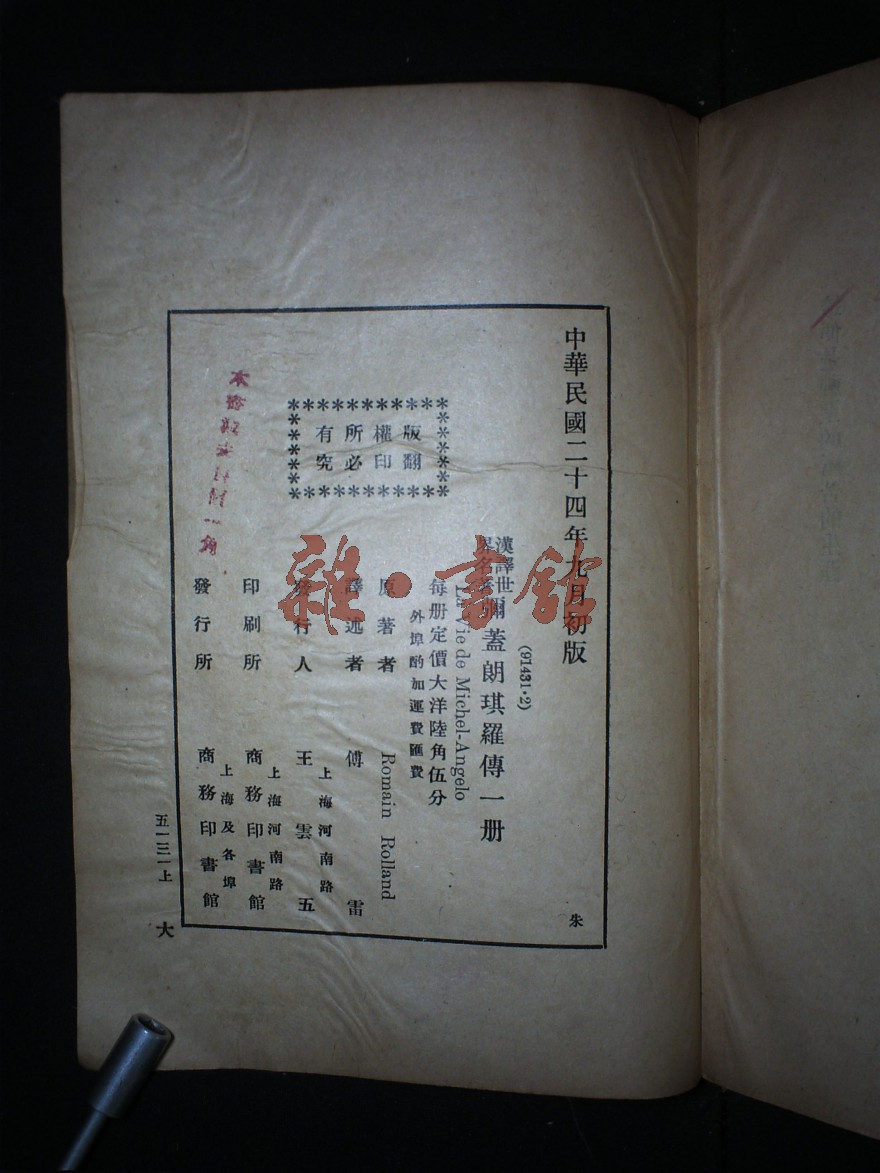 中華民國二十四年九月初版
(91431·2)
漢譯世
界名著
彌蓋朗琪羅傳一册
La Vie de Michel-Angelo
每册定價大洋陸角伍分
外埠酌加運費匯費
版權所有
翻印必究
原著者 Romain Rolland
譯述者 傅雷
上海河南路
發行人 王雲五
上海河南路
印刷所 商務印書館
上海及各埠
發行所 商務印書館
五一三一上 大
朱
雜·書館